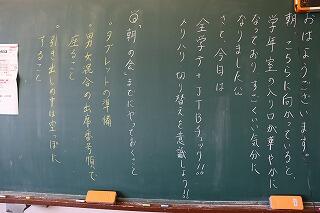 おはようございます。
朝、こちらに向かっていると、
学年室の入り口が華やかに
なっておりすごくいい気分に
なりました
さて、今日は
全学テ+JTBチック!!
メリハリ 切り替えを意識しよう!!
「朝の会」までにやっておくこと
・タブレットの準備
・男女混合の出席番号順で
座ること
・引き出しの中は空っぽに
すること